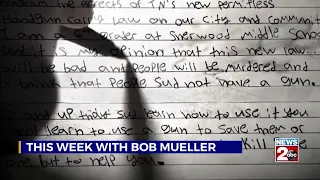 program the effects of TN's new permitless
handgun carry law on our city and community
I am a grader at Sherwood Middle School
and it is my opinion that this new law
will be bad and people will be murdered and
I think that people sud not have a gun.
end up think sud learn how to use it you
learn to use a gun to save them or
kill
one but to help you.
THIS WEEK WITH BOB MUELLER
NEWS
2 abc